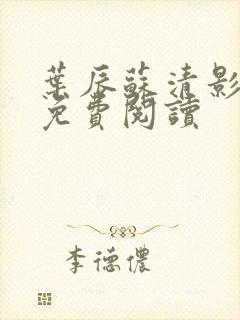 葉辰蘇清影
免費閱讀
李德儂